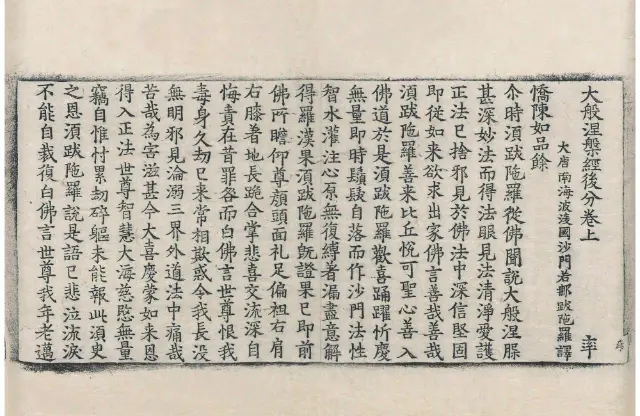 大般涅槃經後分卷上
大唐南海波淩國沙門若那跋陁羅譯
率
憍陳如品餘
尒時須跋陁羅從佛聞說大般涅槃
甚深妙法而得法眼見法清淨愛護
正法已捨邪見於佛法中深信堅固
即從如来欲求出家佛言善哉善哉
須跋陁羅善来比丘悅可聖心善入
佛道於是須跋陁羅歡喜踊躍忻慶
無量即時鬚髮自落而作沙門法性
智水灌注心原無復縛著漏盡意解
得羅漢果須跋陁羅既證果已即前
佛所瞻仰尊顔頭面礼足偏袒右肩
右膝著地長跪合掌悲喜交流深自
悔責在昔罪咎而白佛言世尊恨我
毒身久劫已来常相欺惑令我長没
無明邪見淪溺三界外道法中痛哉
苦哉為害滋甚今大喜慶蒙如来恩
得入正法世尊智慧大海慈愍無量
竊自惟忖累劫碎軀未能報此須臾
之恩須跋陁羅說是語已悲泣流淚
不能自裁復白佛言世尊我年老邁